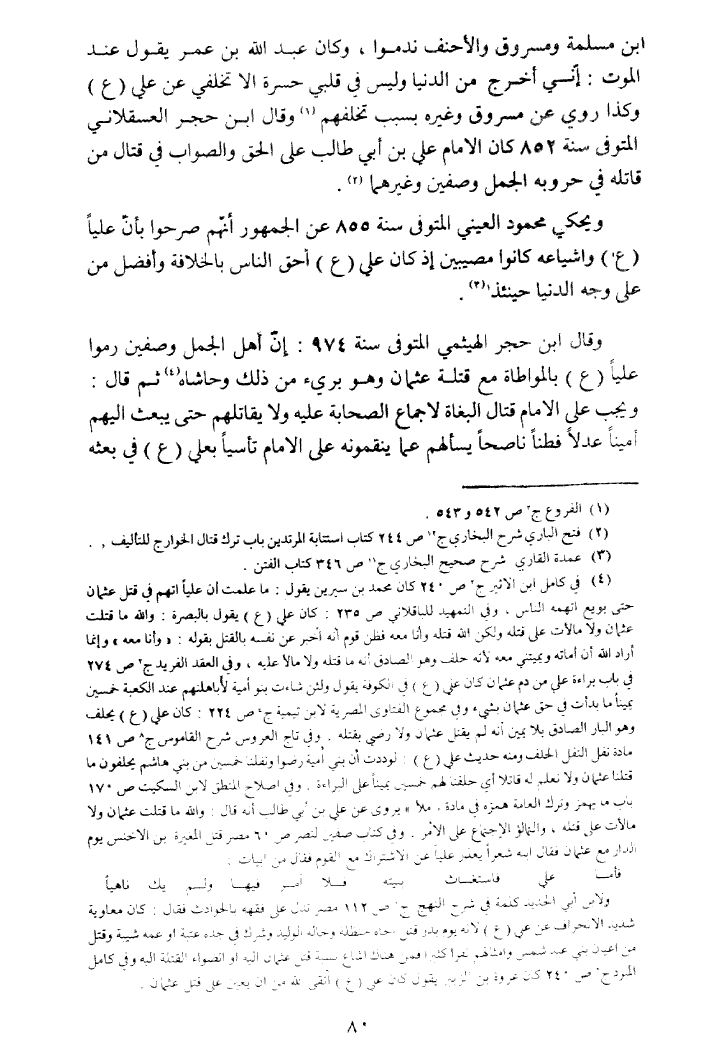 ابن مسلمة ومسروق والأحنف ندموا ، وكان عبد الله بن عمر يقول عند
الموت : إنّني أخرج من الدنيا وليس في قلبي حسرة الا تخلفي عن علي ( ع )
وكذا روي عن مسروق وغيره بسبب تخلفهم (١) وقال ابن حجر العسقلاني
المتوفى سنة ٨٥٢ كان الامام علي بن أبي طالب على الحق والصواب في قتال من
قاتله في حروبه الجمل وصفين وغيرهما (٢) .
ويحكي محمود العيني المتوفى سنة ٨٥٥ عن الجمهور أنّهم صرحوا بأنّ علياً
( ع ) واشياعه كانوا مصيبين إذ كان علي ( ع ) أحق الناس بالخلافة وأفضل من
على وجه الدنيا حينئذ (٣) .
وقال ابن حجر الهيثمي المتوفى سنة ٩٧٤ : إنّ أهل الجمل وصفين رموا
علياً ( ع ) بالمواطاة مع قتلة عثمان وهو بريء من ذلك وحاشاه (٤) ثم قال :
ويجب على الامام قتال البغاة لاجماع الصحابة عليه ولا يقاتلهم حتى يبعث اليهم
أميناً عدلاً فطناً ناصحاً يسألهم عما ينقمونه على الامام تأسياً بعلي ( ع ) في بعثه
(١) الفروع ج٣ ص ٥٤٢ و ٥٤٣ .
(٢) فتح الباري شرح البخاري ج١٢ ص ٢٤٤ كتاب استتابة المرتدين باب ترك قتال الخوارج للتأليف .
(٣) عمدة القاري شرح صحيح البخاري ج١١ ص ٣٤٦ كتاب الفتن .
(٤) في كامل ابن الاثير ج٣ ص ٢٤٠ كان محمد بن سيرين يقول : ما علمت أن علياً اتهم في قتل عثمان
حتى بويع اتهمه الناس ، وفي التمهيد للباقلاني ص ٢٣٥ : كان علي ( ع ) يقول بالبصرة : والله ما قتلت
عثمان ولا مالأت على قتله ولكن الله قتله وأنا معه فظن قوم أنه أخبر عن نفسه بالقتل بقوله : « وأنا معه » وإنما
أراد الله أن أماته ويميتني معه لأنه حلف وهو الصادق أنه ما قتله ولا مالأ عليه ، وفي العقد الفريد ج٢ ص ٢٧٤
في باب براءة علي من دم عثمان كان علي ( ع ) في الكوفة يقول ولئن شاءت بنو أمية لأباهلنهم عند الكعبة خمسين
يميناً ما بدأت في حق عثمان بشيء وفي مجموع الفتاوى المصرية لابن تيمية ج٤ ص ٢٢٤ : كان علي ( ع ) يحلف
وهو البار الصادق بلا يمين أنه لم يقتل عثمان ولا رضي بقتله . وفي تاج العروس شرح القاموس ج٨ ص ١٤١
مادة نفل النفل الحلف ومنه حديث علي ( ع ) : لوددت أن بني أمية رضوا ونفلنا خمسين من بني هاشم يحلفون ما
قتلنا عثمان ولا نعلم له قاتلا أي حلفنا لهم خمسين يميناً على البراءة . وفي اصلاح المنطق لابن السكيت ص ١٧٠
باب ما يهمز وترك العامة همزه في مادة . ملأ » يروى عن علي بن أبي طالب أنه قال : والله ما قتلت عثمان ولا
مالأت على قتله ، والتمالؤ الإجتماع على الأمر . وفي كتاب صفين لنصر ص ٦٠ مصر قتل المغيرة بن الاخنس يوم
الدار مع عثمان فقال ابنه شعراً يعذر علياً عن الاشتراك مع القوم فقال من ابيات :
فأما علي فاستغاث ببيته فلا آمر فيها ولم يك ناهياً
ولابن أبي الحديد كلمة في شرح النهج ص ١١٢ مصر تدل على فقهه بالحوادث فقال : كان معاوية
شديد الانحراف عن علي ( ع ) لأنه يوم بدر قتل أخاه حنظلة وخاله الوليد وشرك في جده عتبة او عمه شيبة وقتل
من اعيان بني عبد شمس وامثالهم نفرا كثيرا فمن هناك اشاع نسبة قتل عثمان اليه او انضواء القتلة اليه وفي كامل
المبرد ج٢ ص ٢٤٠ كان عروة بن الزبير يقول كان علي ( ع ) أتقى لله من ان يعين على قتل عثمان .
٨٠